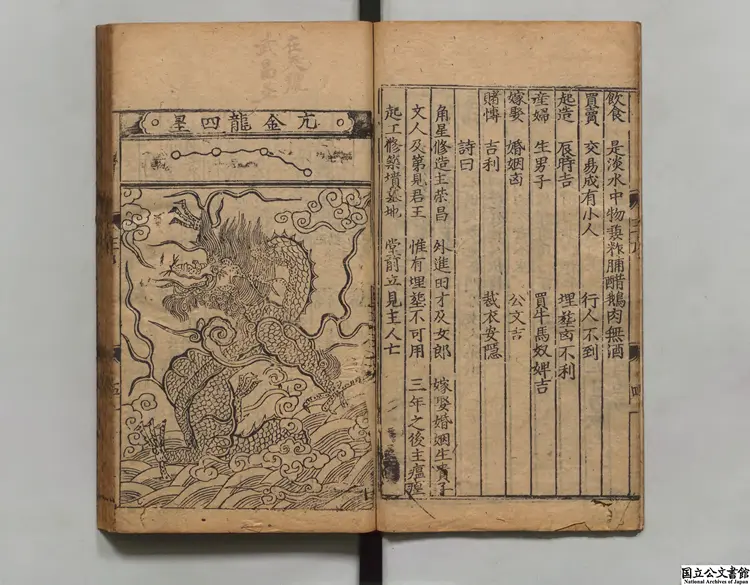 飲食 是淡水中物 脯醋鵝肉無酒
買賣 交易成有小人 行人不到
起造 辰時吉 埋塟凶不利
産婦 生男子 買牛馬奴婢吉
嫁娶 婚姻凶 公文吉
賭慱 吉利 裁衣安隱
詩曰
角星修造主荣昌 外進田才及女郎 嫁娶婚姻生貴子
文人及第見君王 惟有埋塟不可用 三年之後主瘟
起工修築墳墓地 堂前立見主人亡
亢金龍四星
国立公文書館
National Archives of Japan